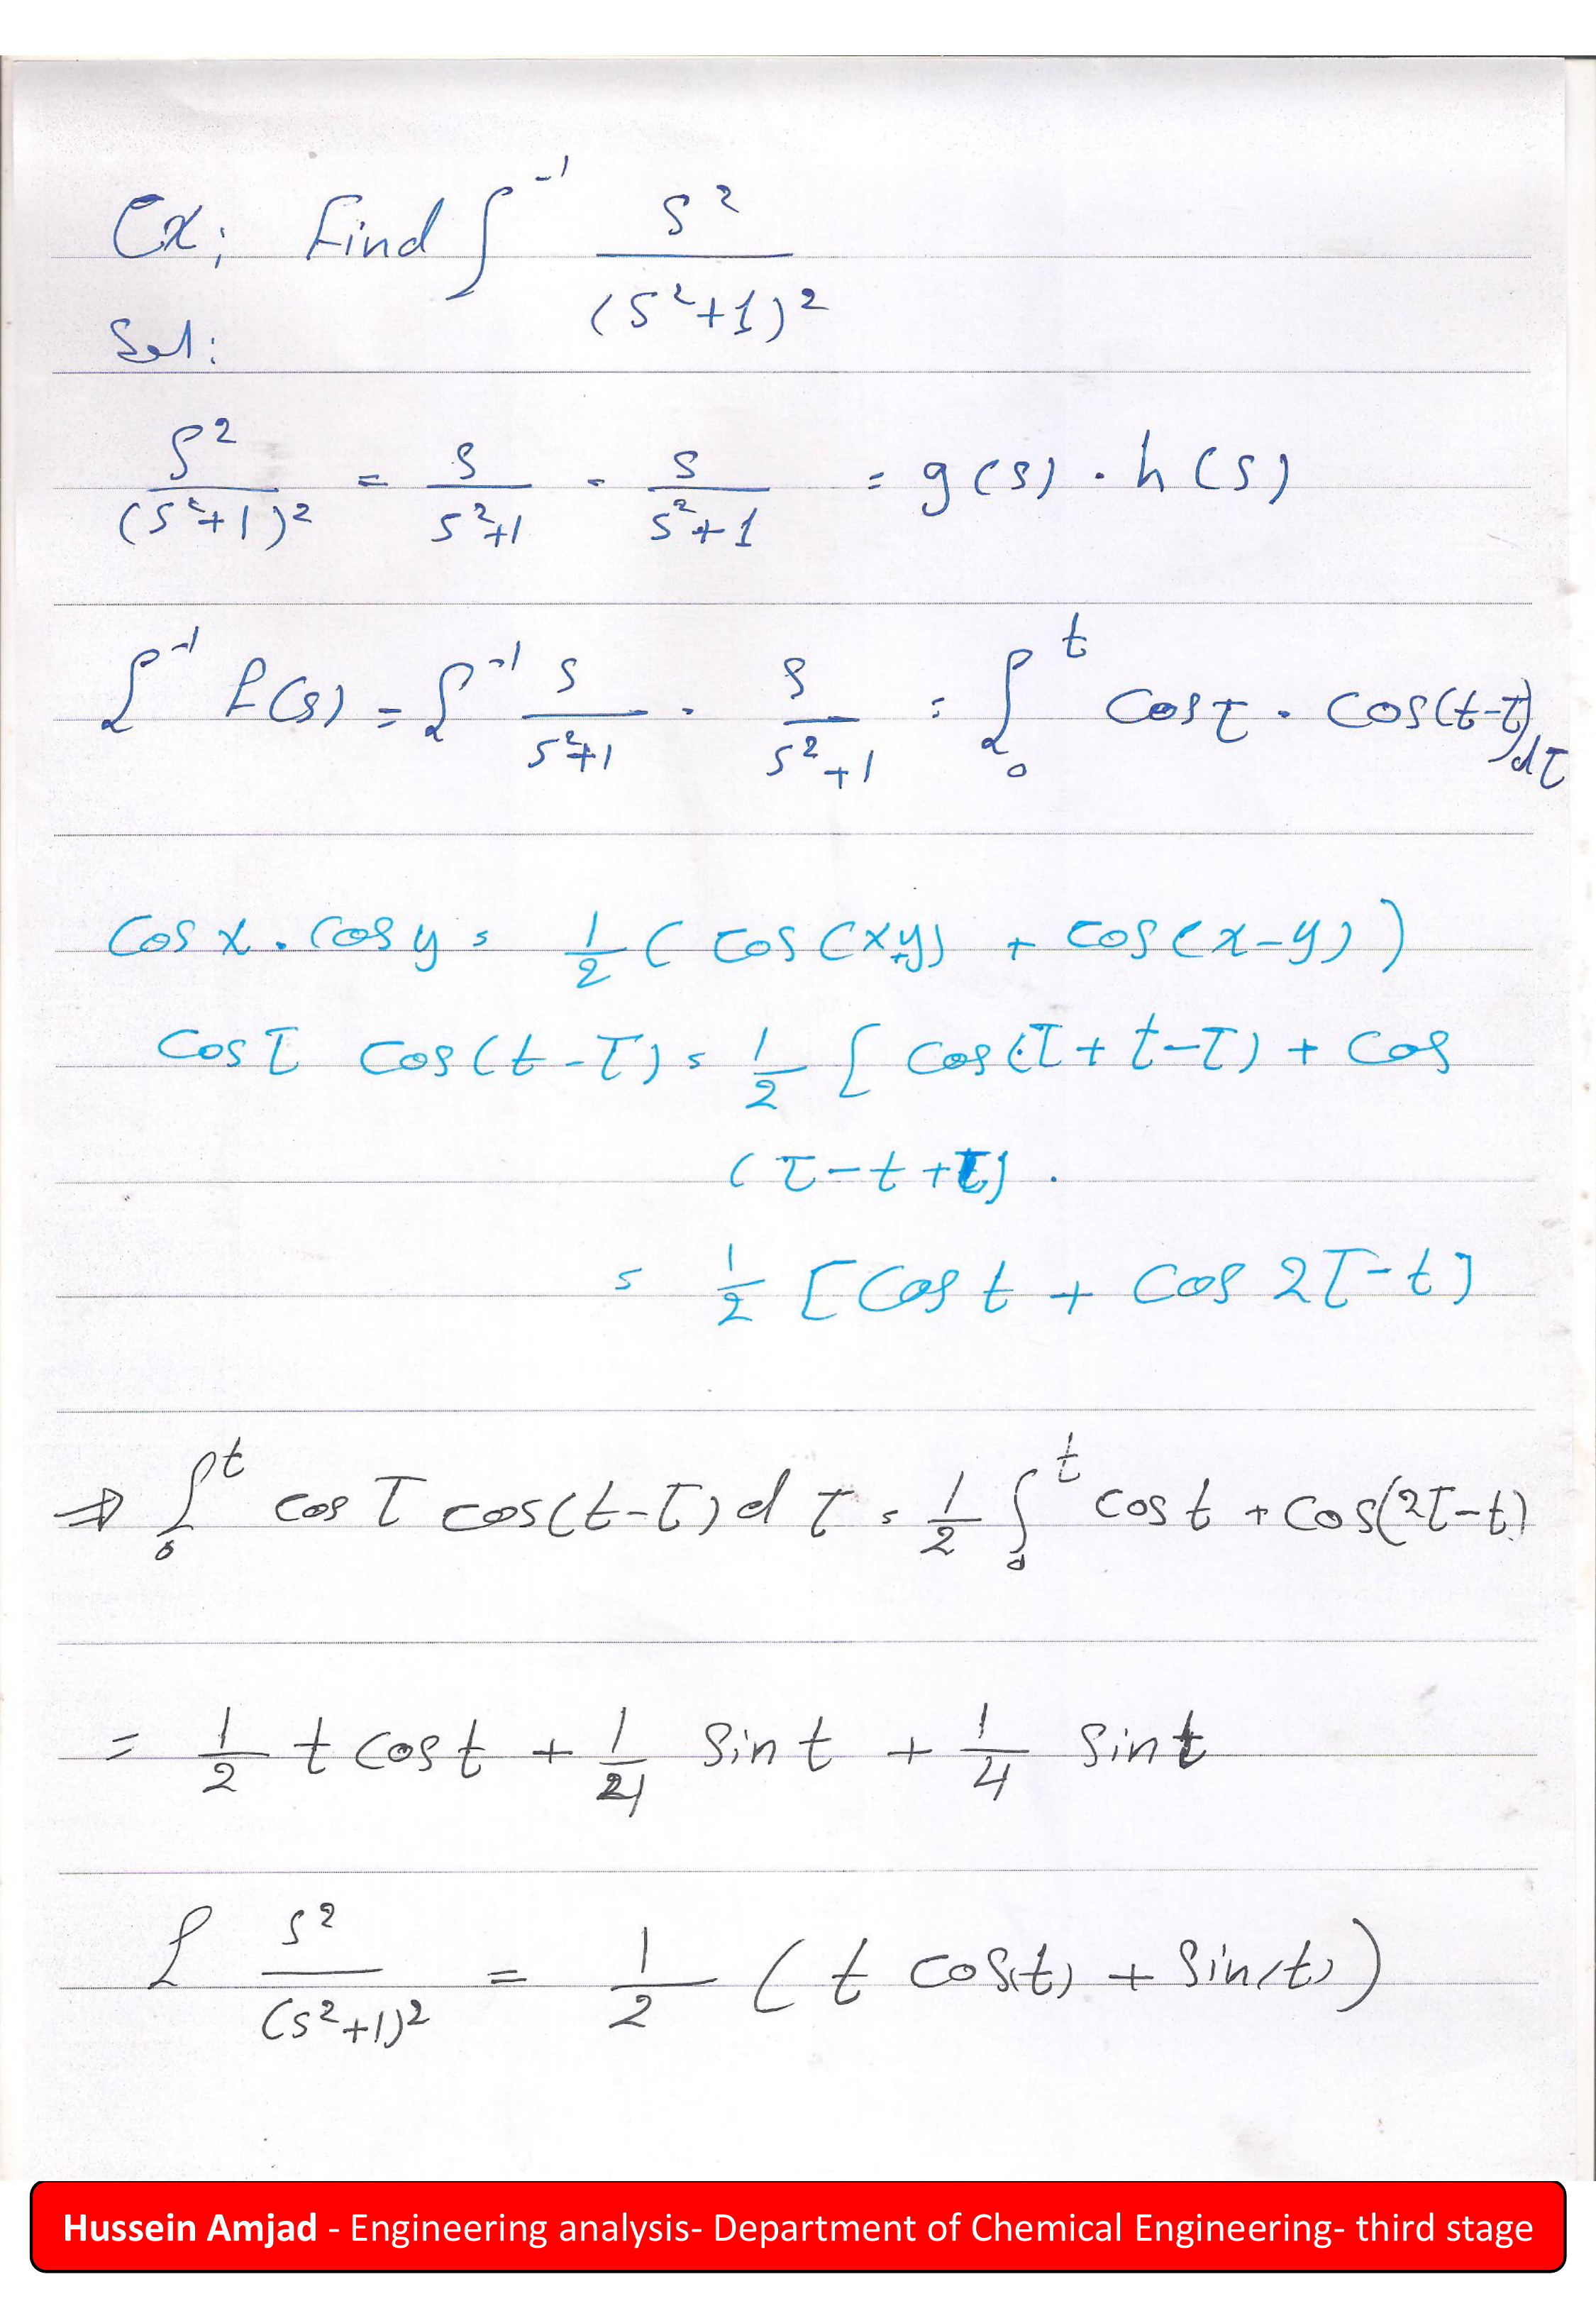 Ex; Find ℒ⁻¹ s² / (s²+1)²
Sol:
s² / (s²+1)² = s / s²+1 . s / s²+1 = g(s) . h(s)
ℒ⁻¹ f(s) = ℒ⁻¹ s / s²+1 . s / s²+1 = ∫₀ᵗ cos τ . cos(t-τ) dτ
Cos x . Cos y = 1/2 ( cos(x+y) + cos(x-y) )
Cos τ Cos(t-τ) = 1/2 [ Cos(τ+t-τ) + Cos
(τ-t+τ) .
= 1/2 [Cos t + Cos 2τ-t]
⇒ ∫₀ᵗ cos τ cos(t-τ) d τ = 1/2 ∫₀ᵗ cos t + cos(2τ-t)
= 1/2 t cos t + 1/4 sin t + 1/4 sin t
ℒ s² / (s²+1)² = 1/2 ( t cos(t) + sin(t) )
Hussein Amjad - Engineering analysis- Department of Chemical Engineering- third stage